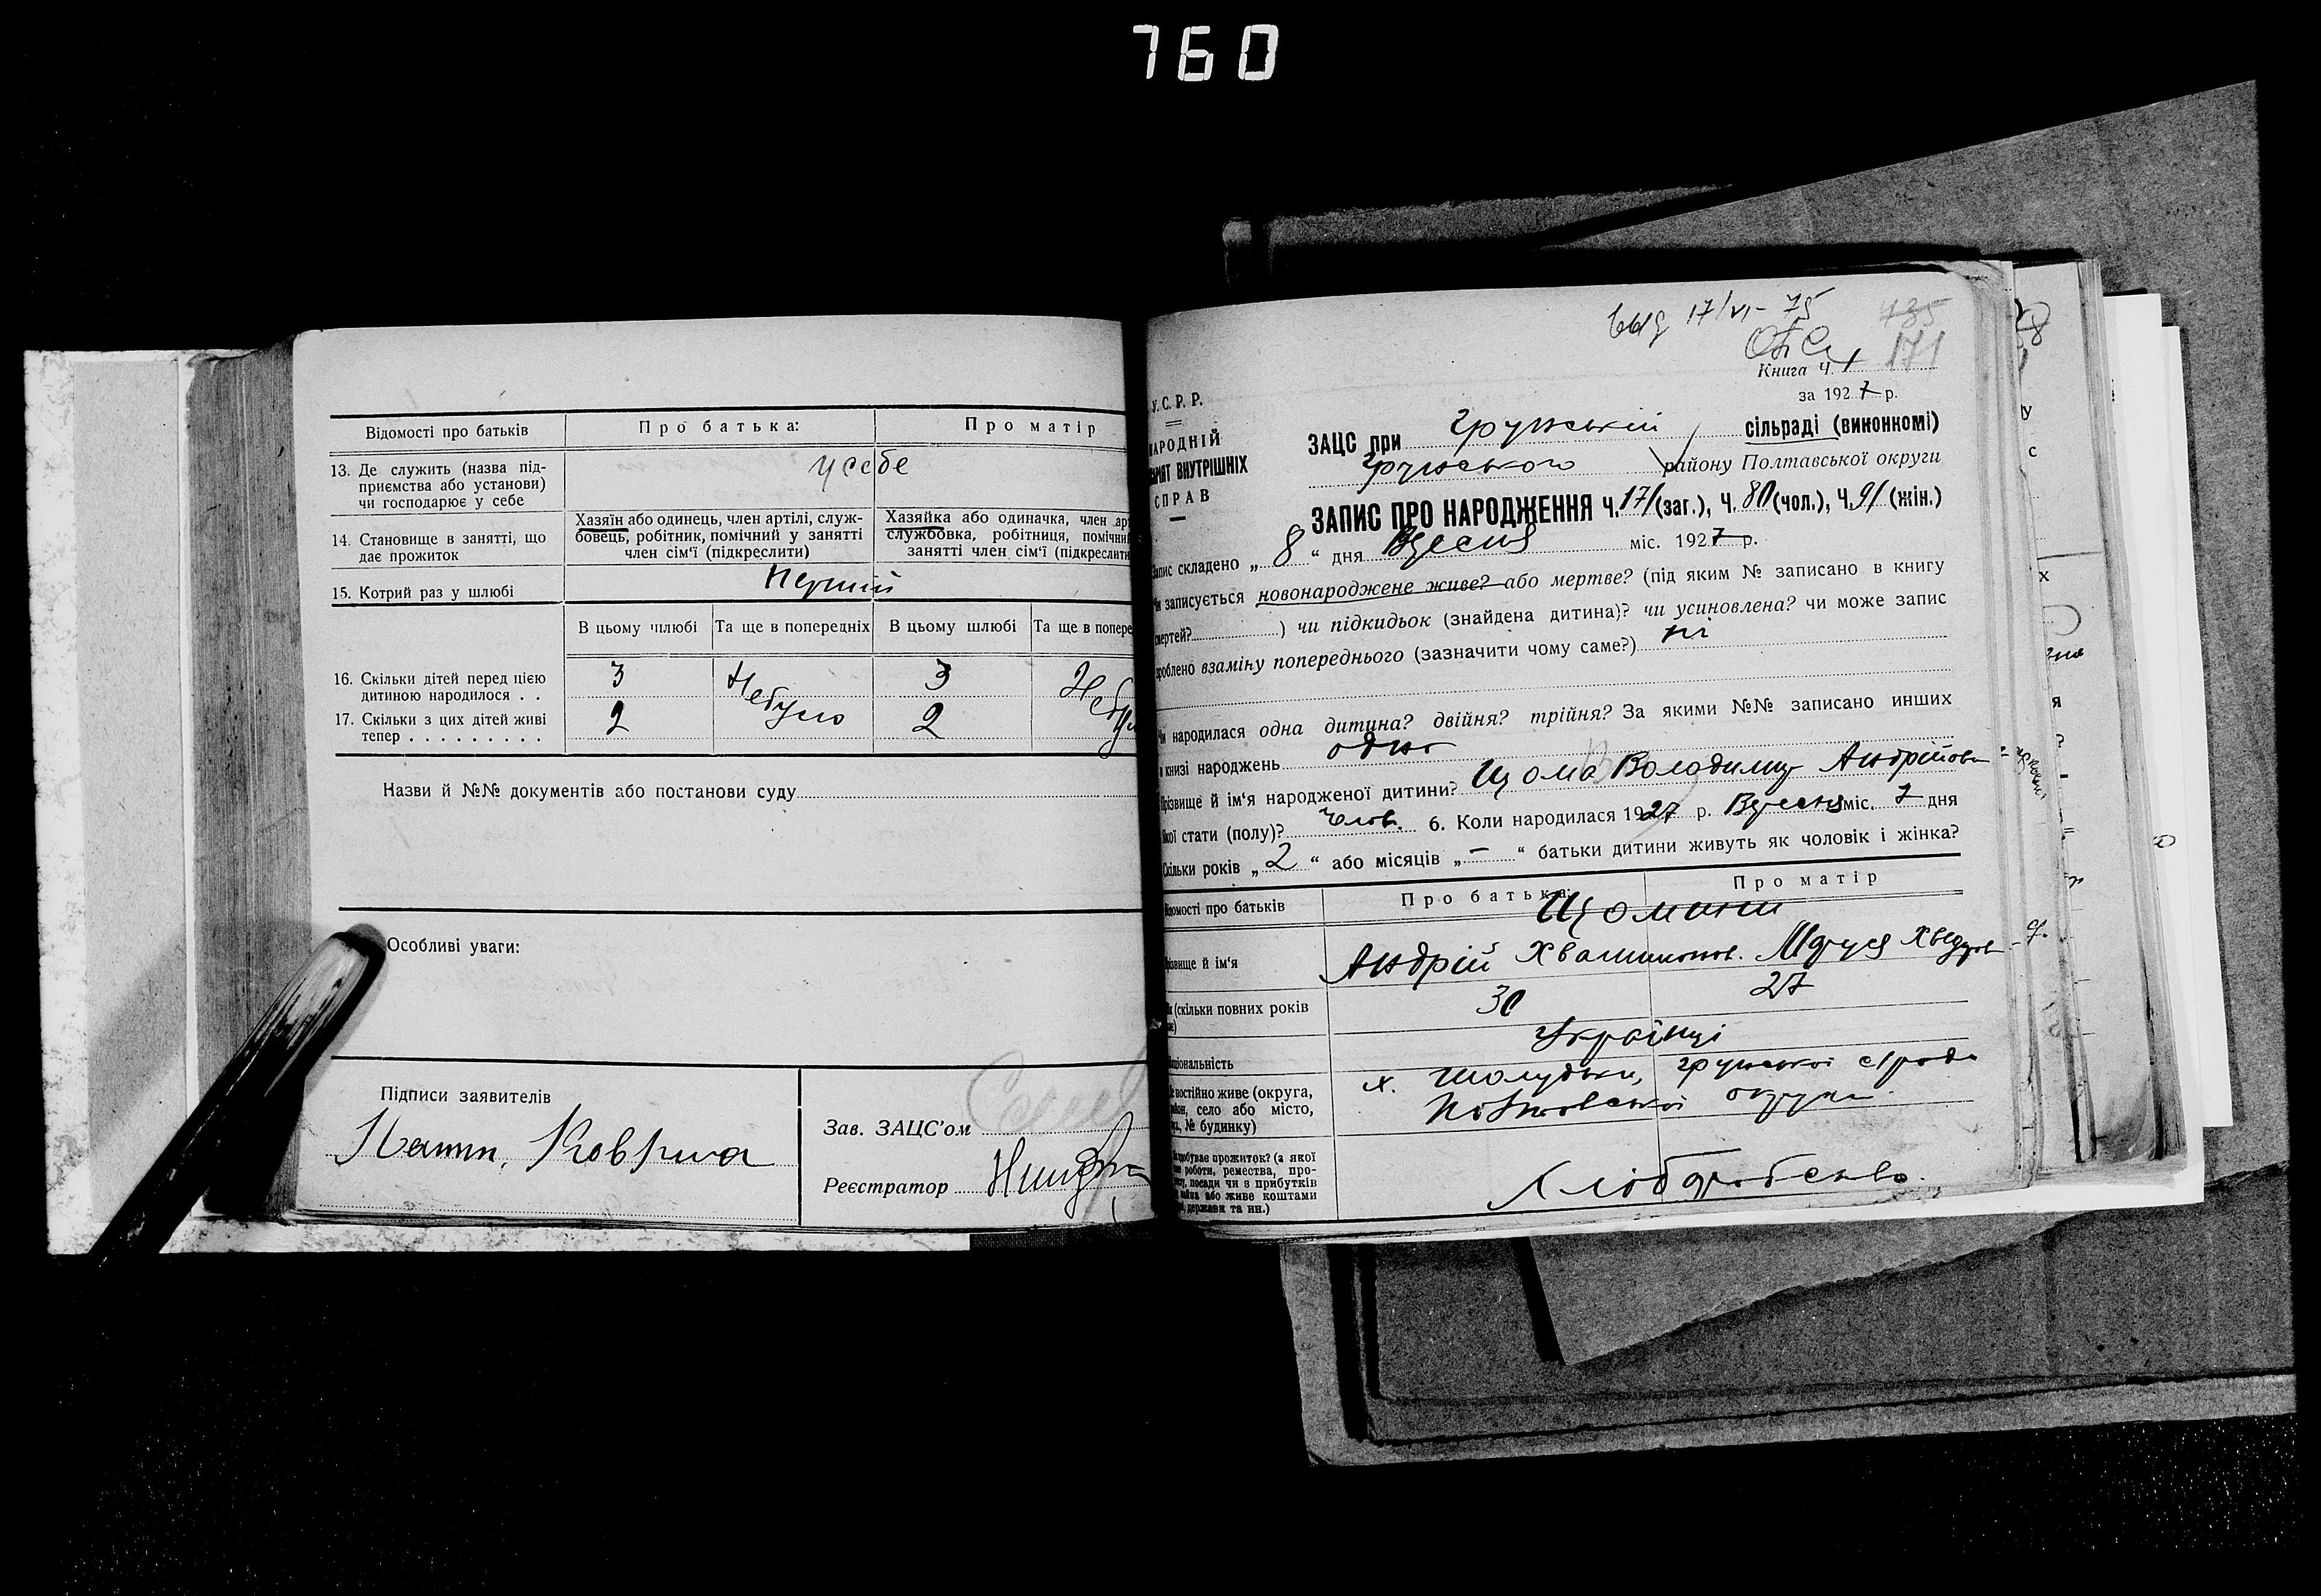 760
Відомості про батьків
Про батька:
Про матір
13. Де служить (назва під-
приємства або установи)
чи господарює у себе
у себе
14. Становище в занятті, що
дає прожиток
Хазяїн або одинець, член артілі, служ-
бовець, робітник, помічний у занятті
член сім'ї (підкреслити)
Хазяйка або одиначка, член ар
службовка, робітниця, помічни
занятті член сім'ї (підкреслити
15. Котрий раз у шлюбі
Перший
В цьому шлюбі
Та ще в попередніх
В цьому шлюбі
Та ще в попере
16. Скільки дітей перед цією
дитиною народилося . .
3
Небуло
3
Небул
17. Скільки з цих дітей живі
тепер . . . . . . . . .
2
2
Назви й №№ документів або постанови суду
Особливі уваги:
Підписи заявителів
Зав. ЗАЦС'ом
Реєстратор
выд 17/VI-75
435
171
Книга Ч. 1
за 1927 р.
У.С.Р.Р.
НАРОДНІЙ
РІЯТ ВНУТРІШНІХ
СПРАВ
ЗАЦС при Грунській сільраді (виконкомі)
Грунського району Полтавської округи
ЗАПИС ПРО НАРОДЖЕННЯ Ч. 171 (заг.), Ч. 80 (чол.), Ч. 91 (жін.)
апис складено „ 8 “ дня Вресня міс. 1927 р.
и записується новонароджене живе? або мертве? (під яким № записано в книгу
мертей? ) чи підкидьок (знайдена дитина)? чи усиновлена? чи може запис
роблено взаміну попереднього (зазначити чому саме?) ні
и народилася одна дитина? двійня? трійня? За якими №№ записано инших
в книзі народжень одно
різвище й ім'я народженої дитини? Цьома Володимир Андрійов
кої стати (полу)? Чолов. 6. Коли народилася 1927 р. Вресня міс. 7 дня
кільки років „ 2 “ або місяців „ - “ батьки дитини живуть як чоловік і жінка?
ідомості про батьків
Про батька:
Про матір
різвище й ім'я
Андрій
27
(скільки повних років
30
ціональність
Українці
е постійно живе (округа,
йон, село або місто,
№ будинку)
х.
Грунської с/ради
Полтавської округи
добуває прожиток? (з якої
роботи, ремества, про-
посади чи з прибутків
майна або живе коштами
держави та ин.)
Хліборобство